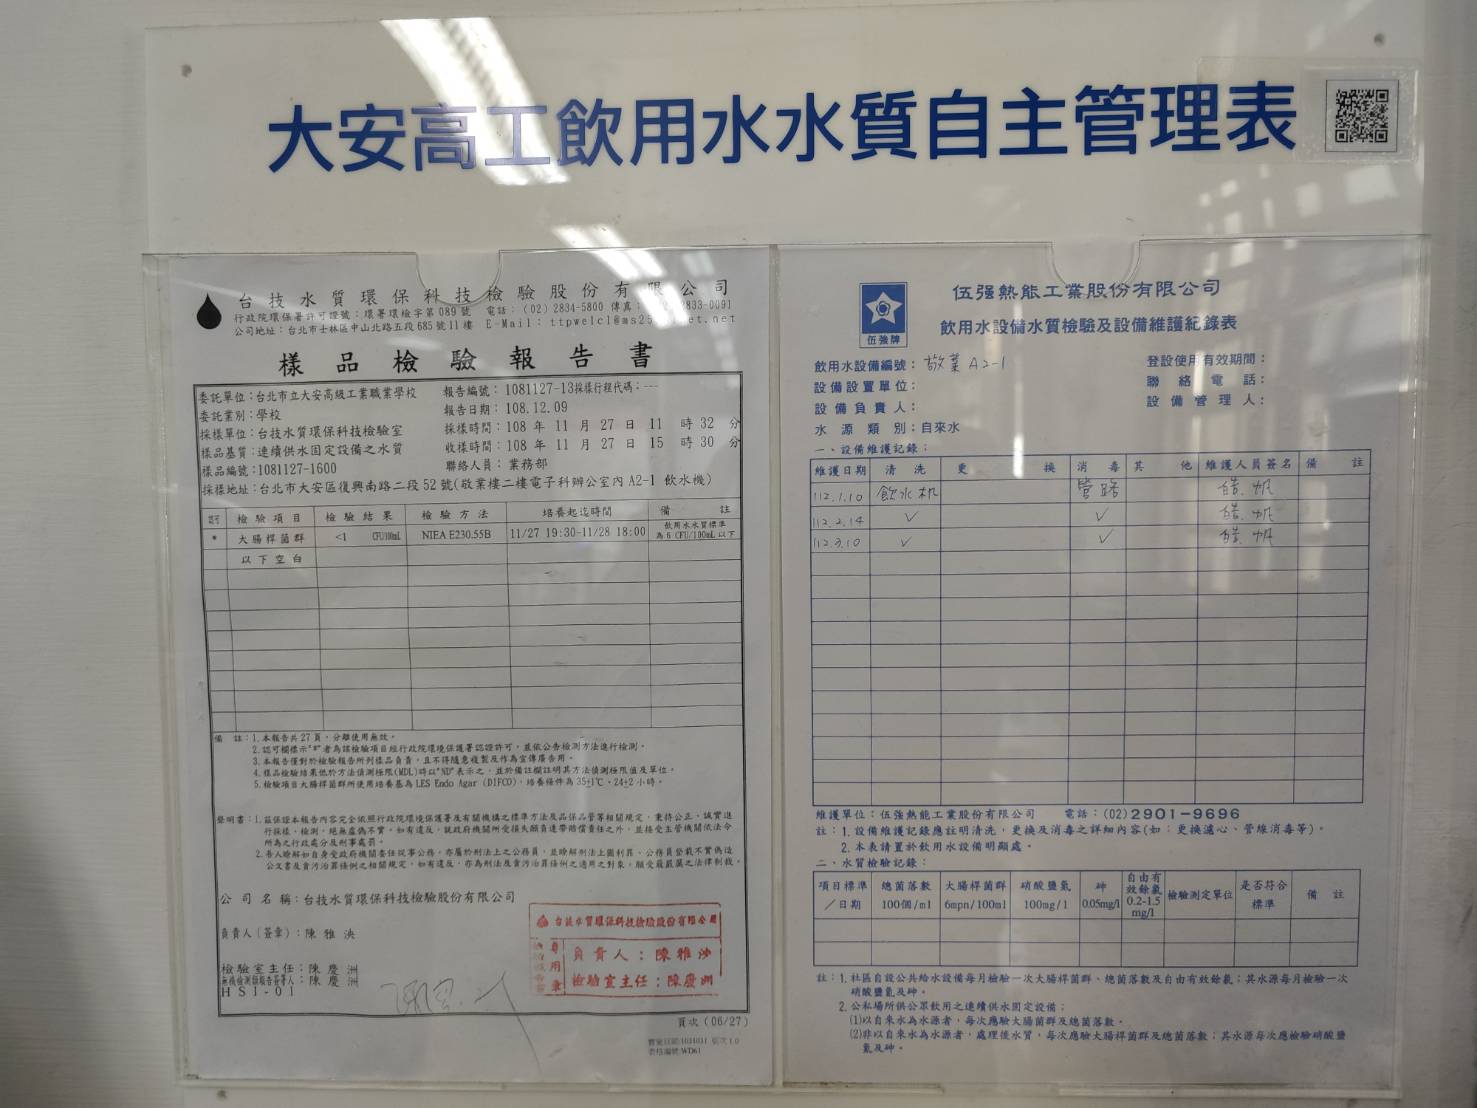 大安高工飲用水水質自主管理表
台技水質環保科技檢驗股份有限公司
行政院環保署許可證號：環署環檢字第089號 電話：(02) 2834-5800 傳真：
公司地址：台北市士林區中山北路五段685號11樓 E-Mail：
樣品檢驗報告書
委託單位：台北市立大安高級工業職業學校 報告編號：1081127-13採樣行程代碼：---
委託業別：學校 報告日期：108.12.09
採樣單位：台技水質環保科技檢驗室 採樣時間：108 年 11 月 27 日 11 時 32 分
樣品基質：連續供水固定設備之水質 收樣時間：108 年 11 月 27 日 15 時 30 分
樣品編號：1081127-1600 聯絡人員：業務部
採樣地址：台北市大安區復興南路二段52號(敬業樓二樓電子科辦公室內A2-1 飲水機)
認可 檢驗項目 檢驗結果 檢驗方法 培養起迄時間 備註
* 大腸桿菌群 <1 CFU/100mL NIEA E230.55B 11/27 19:30-11/28 18:00 飲用水水質標準為6 CFU/100mL以下
以下空白
備註：1.本報告共27頁，分離使用無效。
2.認可欄標示"*"者為該檢驗項目經行政院環境保護署認證許可，並依公告檢測方法進行檢測。
3.本報告僅對於檢驗報告所列樣品負責，且不得隨意複製及作為宣傳廣告用。
4.樣品檢驗結果低於方法偵測極限(MDL)時以"ND"表示之，並於備註欄註明其方法偵測極限值及單位。
5.檢驗項目大腸桿菌群所使用培養基為LES Endo Agar (DIFCO)，培養條件為35±1℃，24±2小時。
聲明書：1.茲保證本報告內容完全依照行政院環境保護署及有關機構之標準方法及品保品管等相關規定，秉持公正、誠實進
行採樣、檢測。絕無虛偽不實，如有違反，就政府機關所受損失願負連帶賠償責任之外，並接受主管機關依法令
所為之行政處分及刑事處罰。
2.吾人瞭解如自身受政府機關委任從事公務，亦屬於刑法上之公務員，並瞭解刑法上圖利罪、公務員登載不實偽造
公文書及貪污治罪條例之相關規定，如有違反，亦為刑法及貪污治罪條例之適用之對象，願受最嚴厲之法律制裁。
公司名稱：台技水質環保科技檢驗股份有限公司
負責人(簽章)：陳雅泱
檢驗室主任：陳慶洲
無機檢測類報告簽署人：陳慶洲
HSI-01
台技水質環保科技檢驗股份有限公司
專用章
負責人：陳雅泱
檢驗室主任：陳慶洲
頁次(06/27)
表格編號:WD61
伍強牌
伍強熱能工業股份有限公司
飲用水設備水質檢驗及設備維護紀錄表
飲用水設備編號：敬業A2-1 登設使用有效期間：
設備設置單位： 聯絡電話：
設備負責人： 設備管理人：
水源類別：自來水
一、設備維護記錄：
維護日期 清洗 更換 消毒 其他 維護人員簽名 備註
112.1.10 飲水机 管路
112.2.14 ✓ ✓
112.3.10 ✓ ✓
維護單位：伍強熱能工業股份有限公司 電話：(02)2901-9696
註：1.設備維護記錄應註明清洗，更換及消毒之詳細內容(如：更換濾心、管線消毒等)。
2.本表請置於飲用水設備明顯處。
二、水質檢驗記錄：
項目標準／日期 總菌落數100個/ml 大腸桿菌群6mpn/100ml 硝酸鹽氮100mg/l 砷0.05mg/l 自由有效餘氯0.2-1.5mg/l 檢驗測定單位 是否符合標準 備註
註：1.社區自設公共給水設備每月檢驗一次大腸桿菌群、總菌落數及自由有效餘氯；其水源每月檢驗一次
硝酸鹽氮及砷。
2.公私場所供公眾飲用之連續供水固定設備：
(1)以自來水為水源者，每次應驗大腸菌群及總菌落數。
(2)非以自來水為水源者，處理後水質，每次應驗大腸桿菌群及總菌落數；其水源每次應檢驗硝酸鹽
氮及砷。